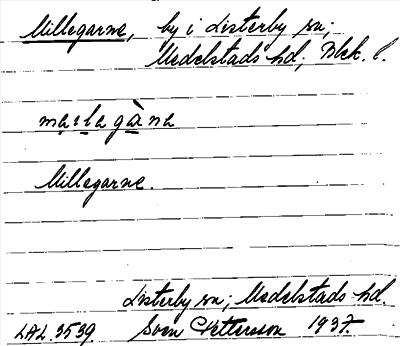 Millegarne, by i Listerby sn;
Medelstads hd; Blek. l.
mạɪlagàna
Millegarne.
Listerby sn; Medelstads hd.
LAL. 3539. Sven Pettersson 1937.